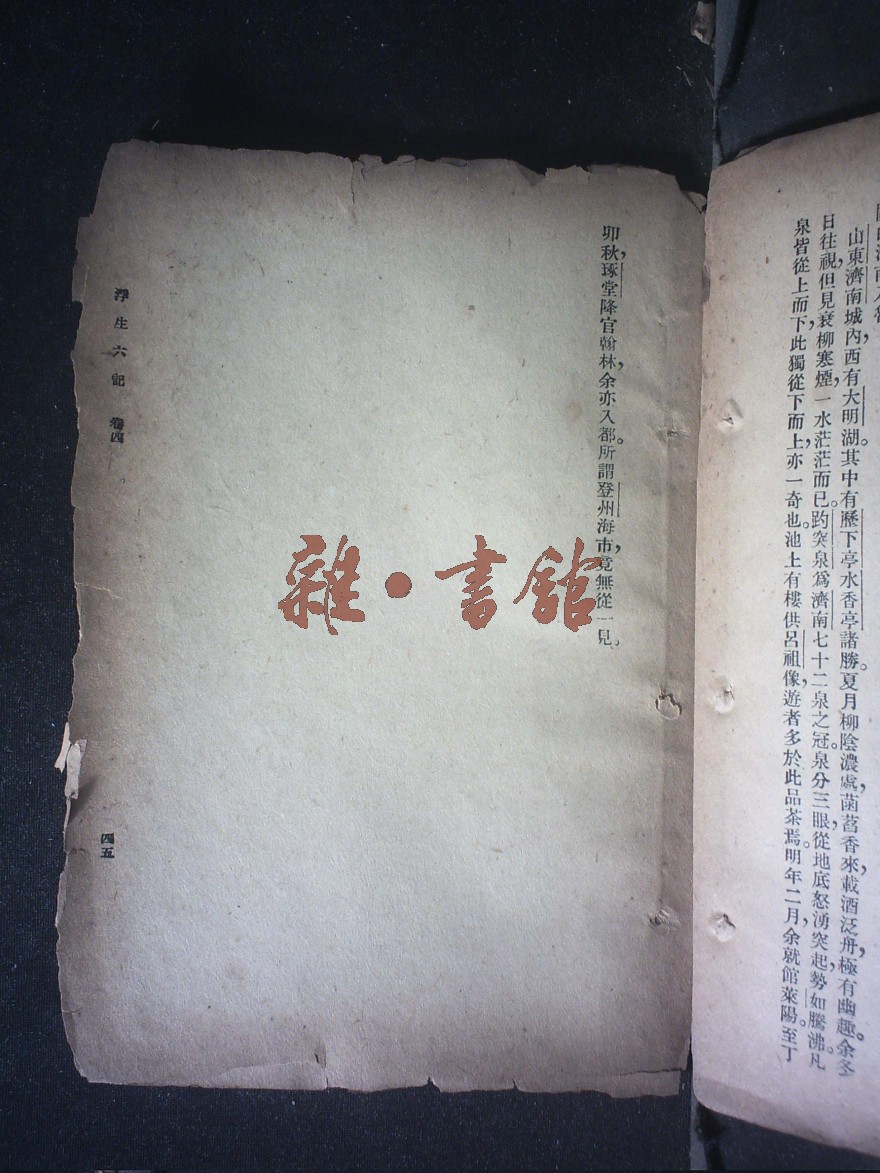 山東濟南城內，西有大明湖。其中有歷下亭水香亭諸勝。夏月柳陰濃處，菡萏香來，載酒泛舟，極有幽趣。余冬
日往視，但見衰柳寒煙，一水茫茫而已。趵突泉爲濟南七十二泉之冠。泉分三眼，從地底怒湧突起，勢如騰沸。凡
泉皆從上而下，此獨從下而上，亦一奇也。池上有樓，供呂祖像，遊者多於此品茶焉。明年二月，余就館萊陽。至丁
卯秋，琢堂降官翰林，余亦入都。所謂登州海市，竟無從一見。
浮生六記 卷四
四五
雜·書館